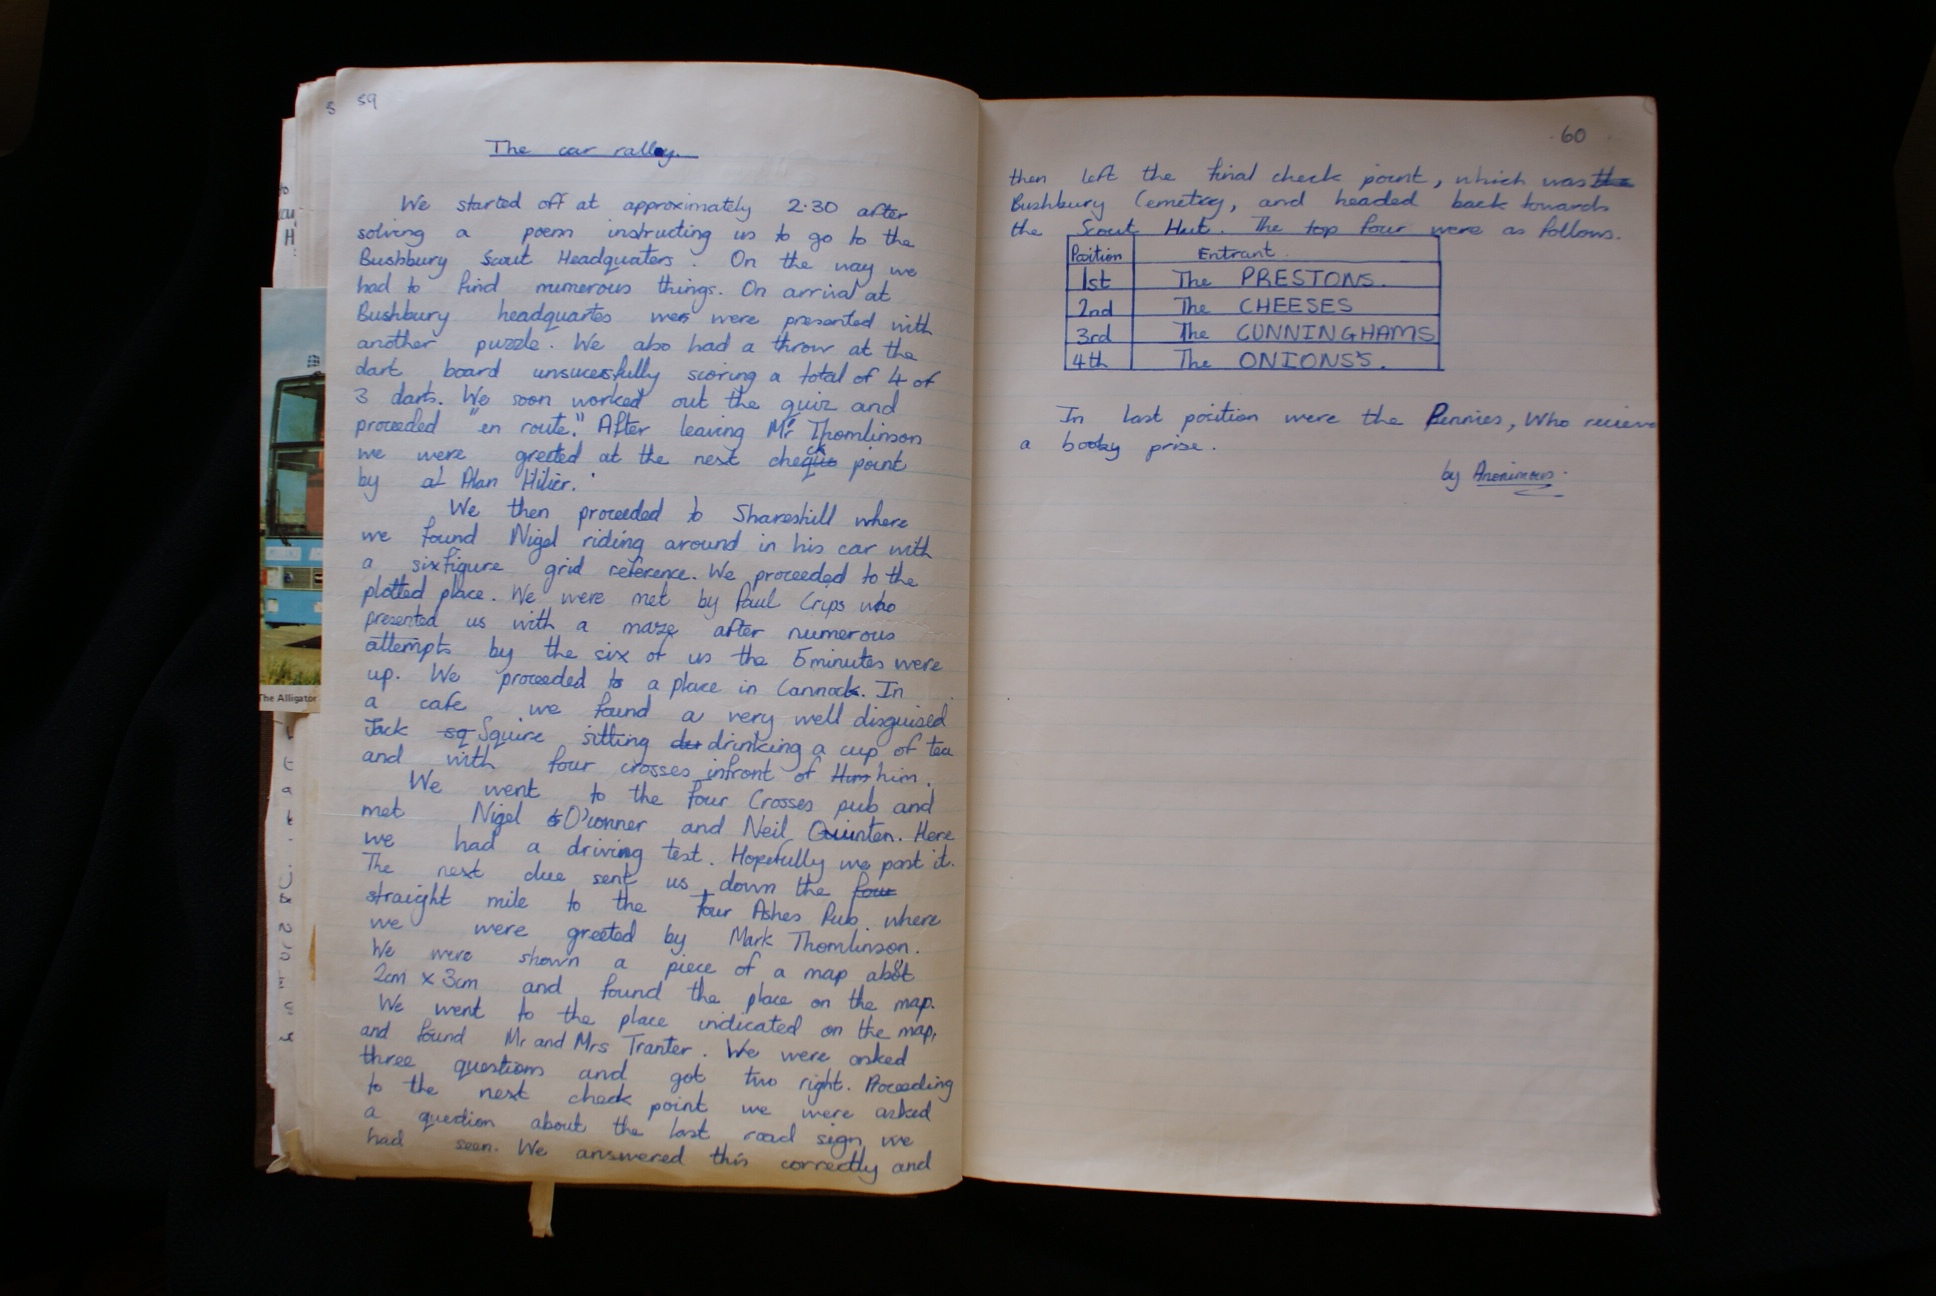 59
The car ralley.
We started off at approximately 2.30 after
solving a poem instructing us to go to the
Bushbury Scout Headquaters. On the way we
had to find numerous things. On arrival at
Bushbury headquartes were presented with
another puzzle. We also had a throw at the
dart board unsucesfully scoring a total of 4 of
3 darts. We soon worked out the quiz and
proceeded "en route." After leaving Mr Thomlinson
we were greeted at the next check point
by al Alan Hilier.
We then proceeded to Shareshill where
we found Nigel riding around in his car with
a sixfigure grid reference. We proceeded to the
plotted place. We were met by Paul Crips who
presented us with a maze after numerous
attempts by the six of us the 5minutes were
up. We proceeded to a place in Cannock. In
a cafe we found a very well disguised
Jack sq Squire sitting drinking a cup of tea
and with four crosses infront of Him him.
We went to the four Crosses pub and
met Nigel O'conner and Neil Quinten. Here
we had a driving test. Hopefully we past it.
The next clue sent us down the four
straight mile to the four Ashes Pub where
we were greeted by Mark Thomlinson.
We were shown a piece of a map about
2cm x 3cm and found the place on the map.
We went to the place indicated on the map,
and found Mr and Mrs Tranter. We were asked
three questions and got two right. Proceeding
to the next check point we were asked
a question about the last road sign we
had seen. We answered this correctly and
The Alligator
60
then left the final check point, which was the
Bushbury Cemetry, and headed back towards
the Scout Hut. The top four were as follows.
Position Entrant.
1st The PRESTONS.
2nd The CHEESES
3rd The CUNNINGHAMS
4th The ONIONS'S.
In last position were the Pennies, Who recieve
a booby prise.
by Anonimous.